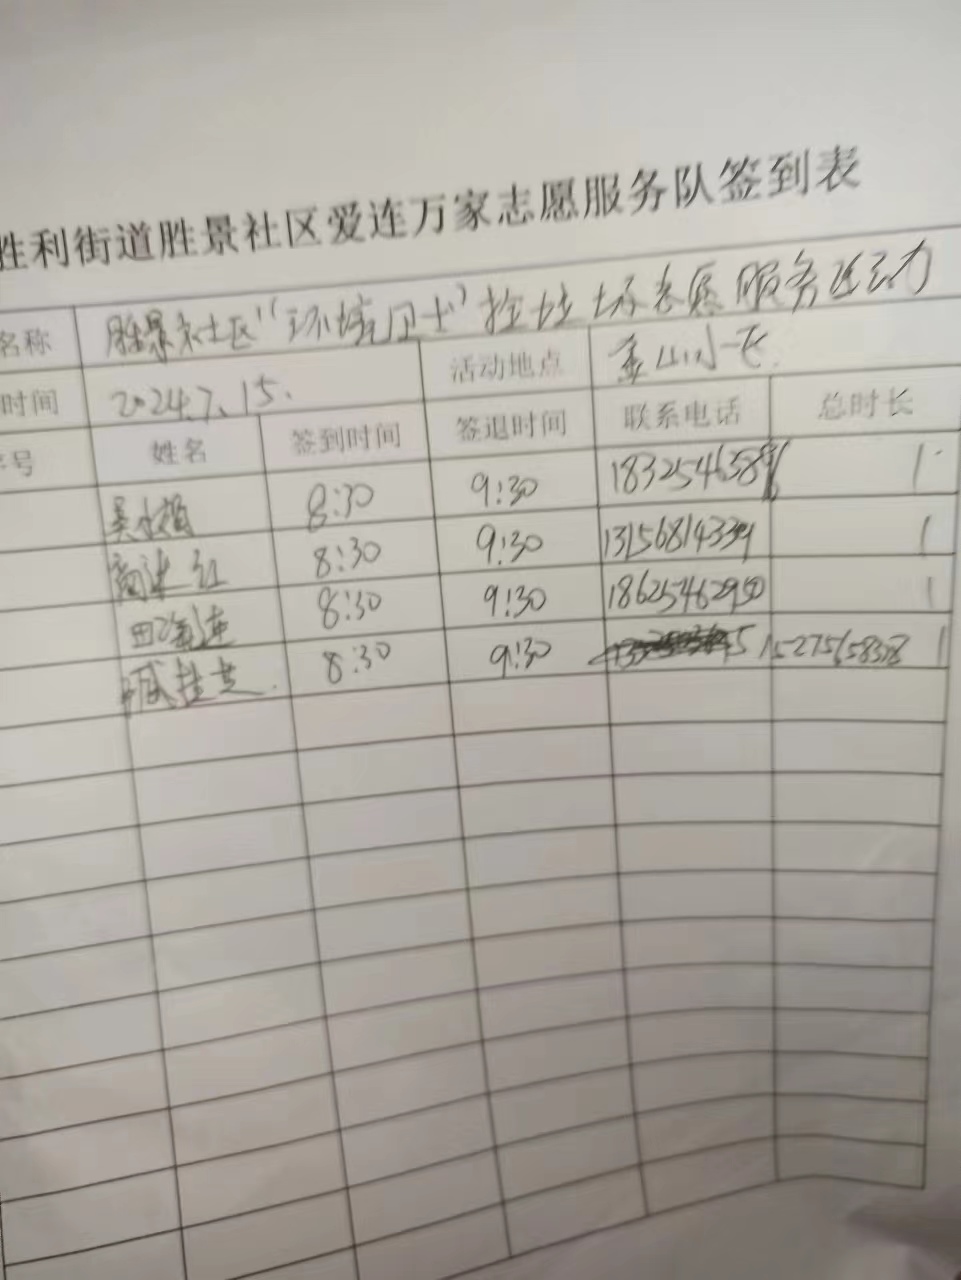 胜利街道胜景社区爱连万家志愿服务队签到表
名称 胜景社区“环境卫士”捡垃圾志愿服务活动
时间 2024.7.15. 活动地点 金山小区
序号 姓名 签到时间 签退时间 联系电话 总时长
8:30 9:30 1
8:30 9:30 1
田海莲 8:30 9:30 18625462950 1
臧桂芝 8:30 9:30 1